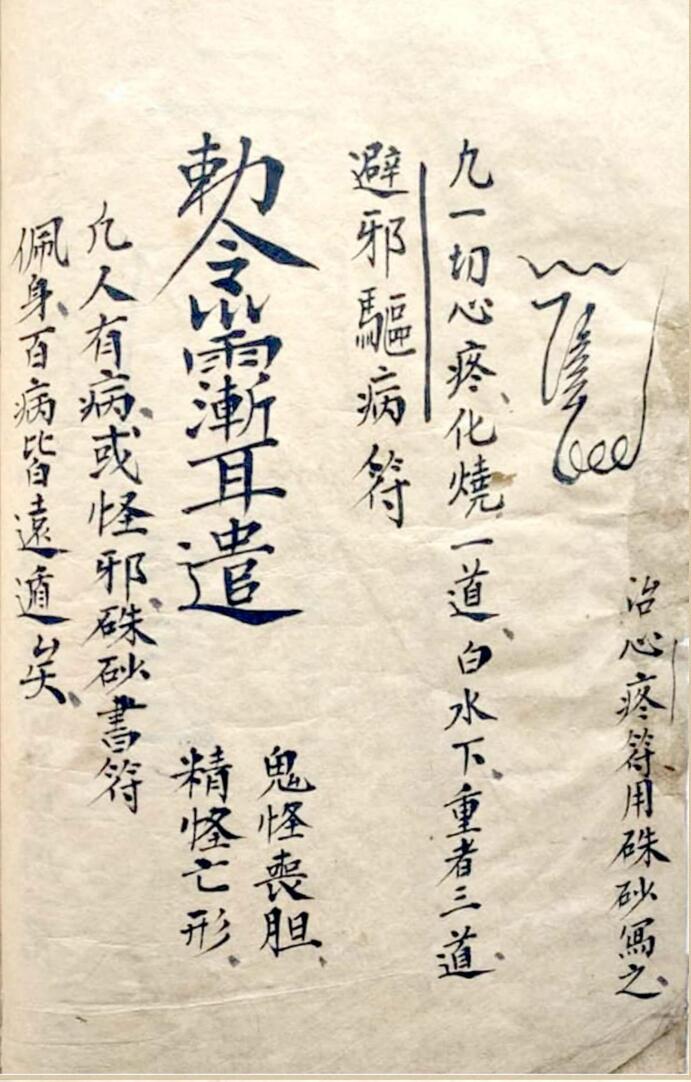 治心疼符用硃砂寫之、
凡一切心疼、化燒一道、白水下、重者三道、
避邪驅病符
勅令雨漸耳遣
鬼怪喪胆、
精怪亡形、
凡人有病、或怪邪、硃砂書符
佩身、百病皆遠遁矣、